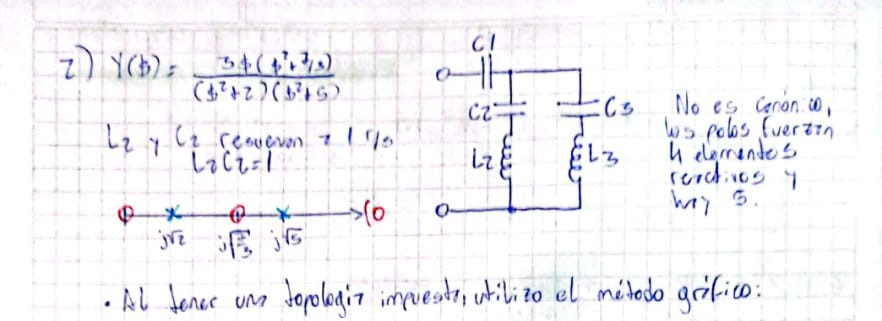 2) Y($) = 3$($²+7/3) / ($²+2)($²+5)
L2 y C2 resuenan a 1 r/s
L2C2=1
C1
C2
C3
L2
L3
No es canónico,
los polos fuerzan
4 elementos
reactivos y
hay 5.
j√2 j√7/3 j√5
• Al tener una topología impuesta, utilizo el método gráfico: